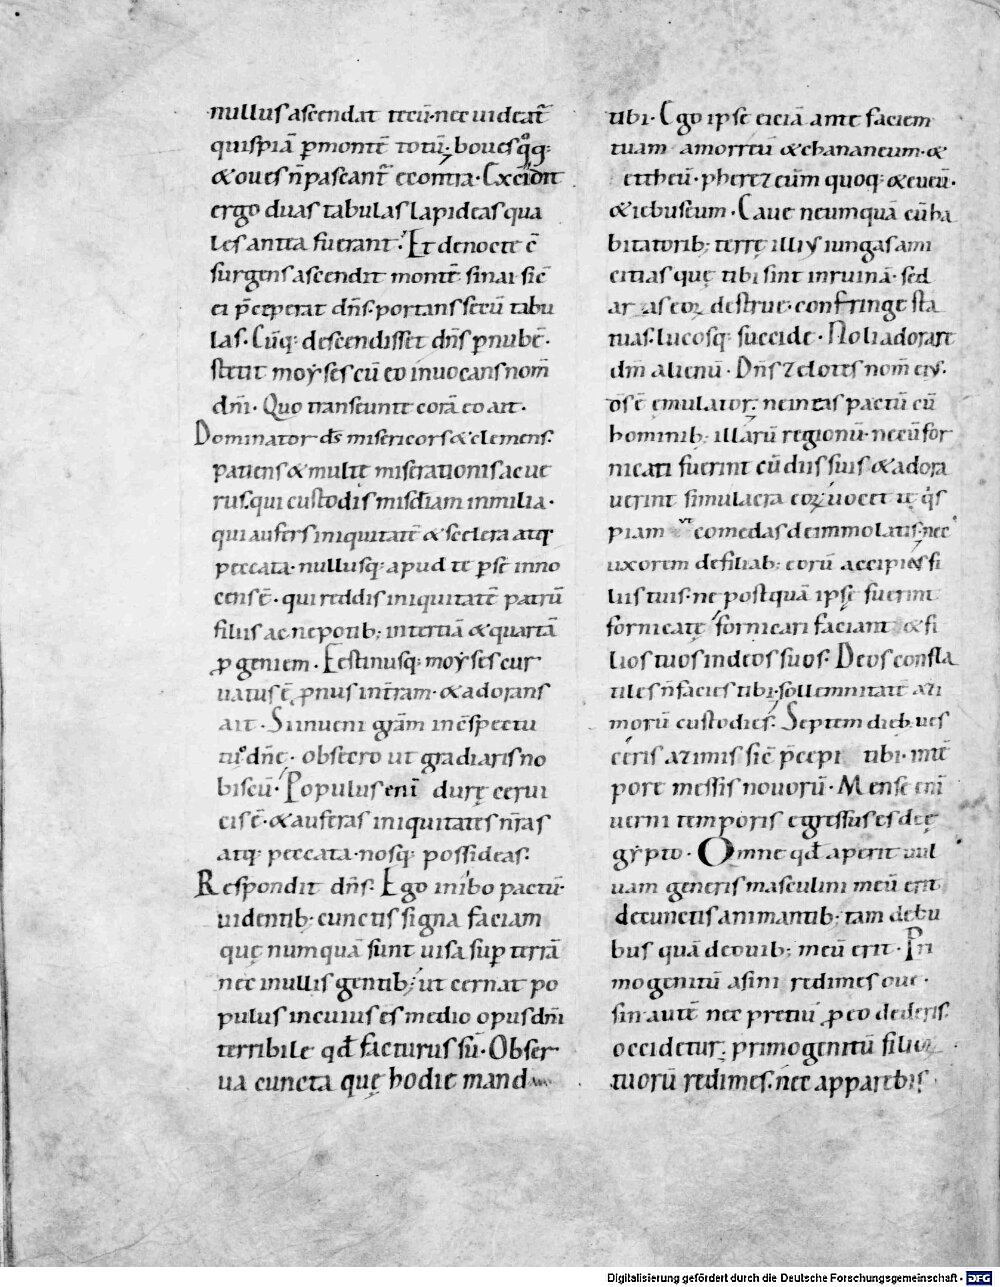 nullus ascendat tecū· nec uideat᷑
quispiā p̄ montē totū; boues q̊q;
& oues n̄ pascant᷑ econtra· Excidit
ergo duas tabulas lapideas qua
les antea fuerant· Et de nocte c̄
surgens ascendit montē sinai sic̄
ei p̄ceperat dn̄s· portans secū tabu
las· Cūq; descendisset dn̄s p̄ nubē·
stetit moẏses cū eo inuocans nom̄
dn̄i· Quo transeunte corā eo ait·
Dominator ds̄ misericors & clemens·
patiens & multę miserationis ac ue
rus· qui custodis misc̄diam in milia·
qui aufers iniquitatē & scelera atq;
peccata· nullusq; apud te p̄ se inno
cens ē· qui reddis iniquitatē patrū
filiis ac nepotib; in tertiā & quartā
ꝓgeniem· Festinusq; moẏses cur
uatus ē ꝓnus in t̄ram· & adorans
ait· Si inueni grām in c̄spectu
tuo dn̄e· obsecro ut gradiaris no
biscū· Populus enī durę cerui
cis ē· & auferas iniquitates nr̄as
atq; peccata· nosq; possideas·
Respondit dn̄s· Ego inibo pactū·
uidentib; cunctis signa faciam
quę numquā sunt uisa sup̄ terrā
nec in ullis gentib; ut cernat po
pulus in cuius es medio opus dn̄i
terribile qđ facturus sū· Obser
ua cuncta quę hodie mand
tibi· Ego ipse eiciā ante faciem
tuam amorreū & chananeum· &
ettheū· pherezeum quoq; & eueū·
& iebuseum· Caue ne umquā cū ha
bitatorib; terrę illius iungas ami
citias quę tibi sint in ruinā· sed
aras eoꝝ destrue· confringe sta
tuas· lucosq; succide· Noli adorare
dm̄ alienū· Dn̄s zelotes nom̄ eius·
ds̄ ē ęmulator· ne ineas pactū cū
hominib; illarū regionū· ne cū for
nicati fuerint cū diis suis & adora
uerint simulacra eoꝝ uocet te q̇s
piam ut comedas de immolatis· nec
uxorem de filiab; eorū accipies fi
liis tuis· ne postquā ipsę fuerint
fornicatę fornicari faciant & fi
lios tuos in deos suos· Deos confla
tiles n̄ facies tibi· sollemnitatē azi
morū custodies· Septem dieb; ues
ceris azimis sic̄ p̄cepi tibi· in tē
pore mensis nouorū· Mense enī
uerni temporis egressus es de ę
gẏpto· Omne qđ aperit uul
uam generis masculini meū erit
de cunctis animantib; tam de bu
bus quā de ouib; meū erit· Pri
mogenitū asini redimes oue·
sin autē nec pretiū ꝓ eo dederis·
occidetur· primogenitū filioꝝ
tuorū redimes· nec apparebis
Digitalisierung gefördert durch die Deutsche Forschungsgemeinschaft - DFG